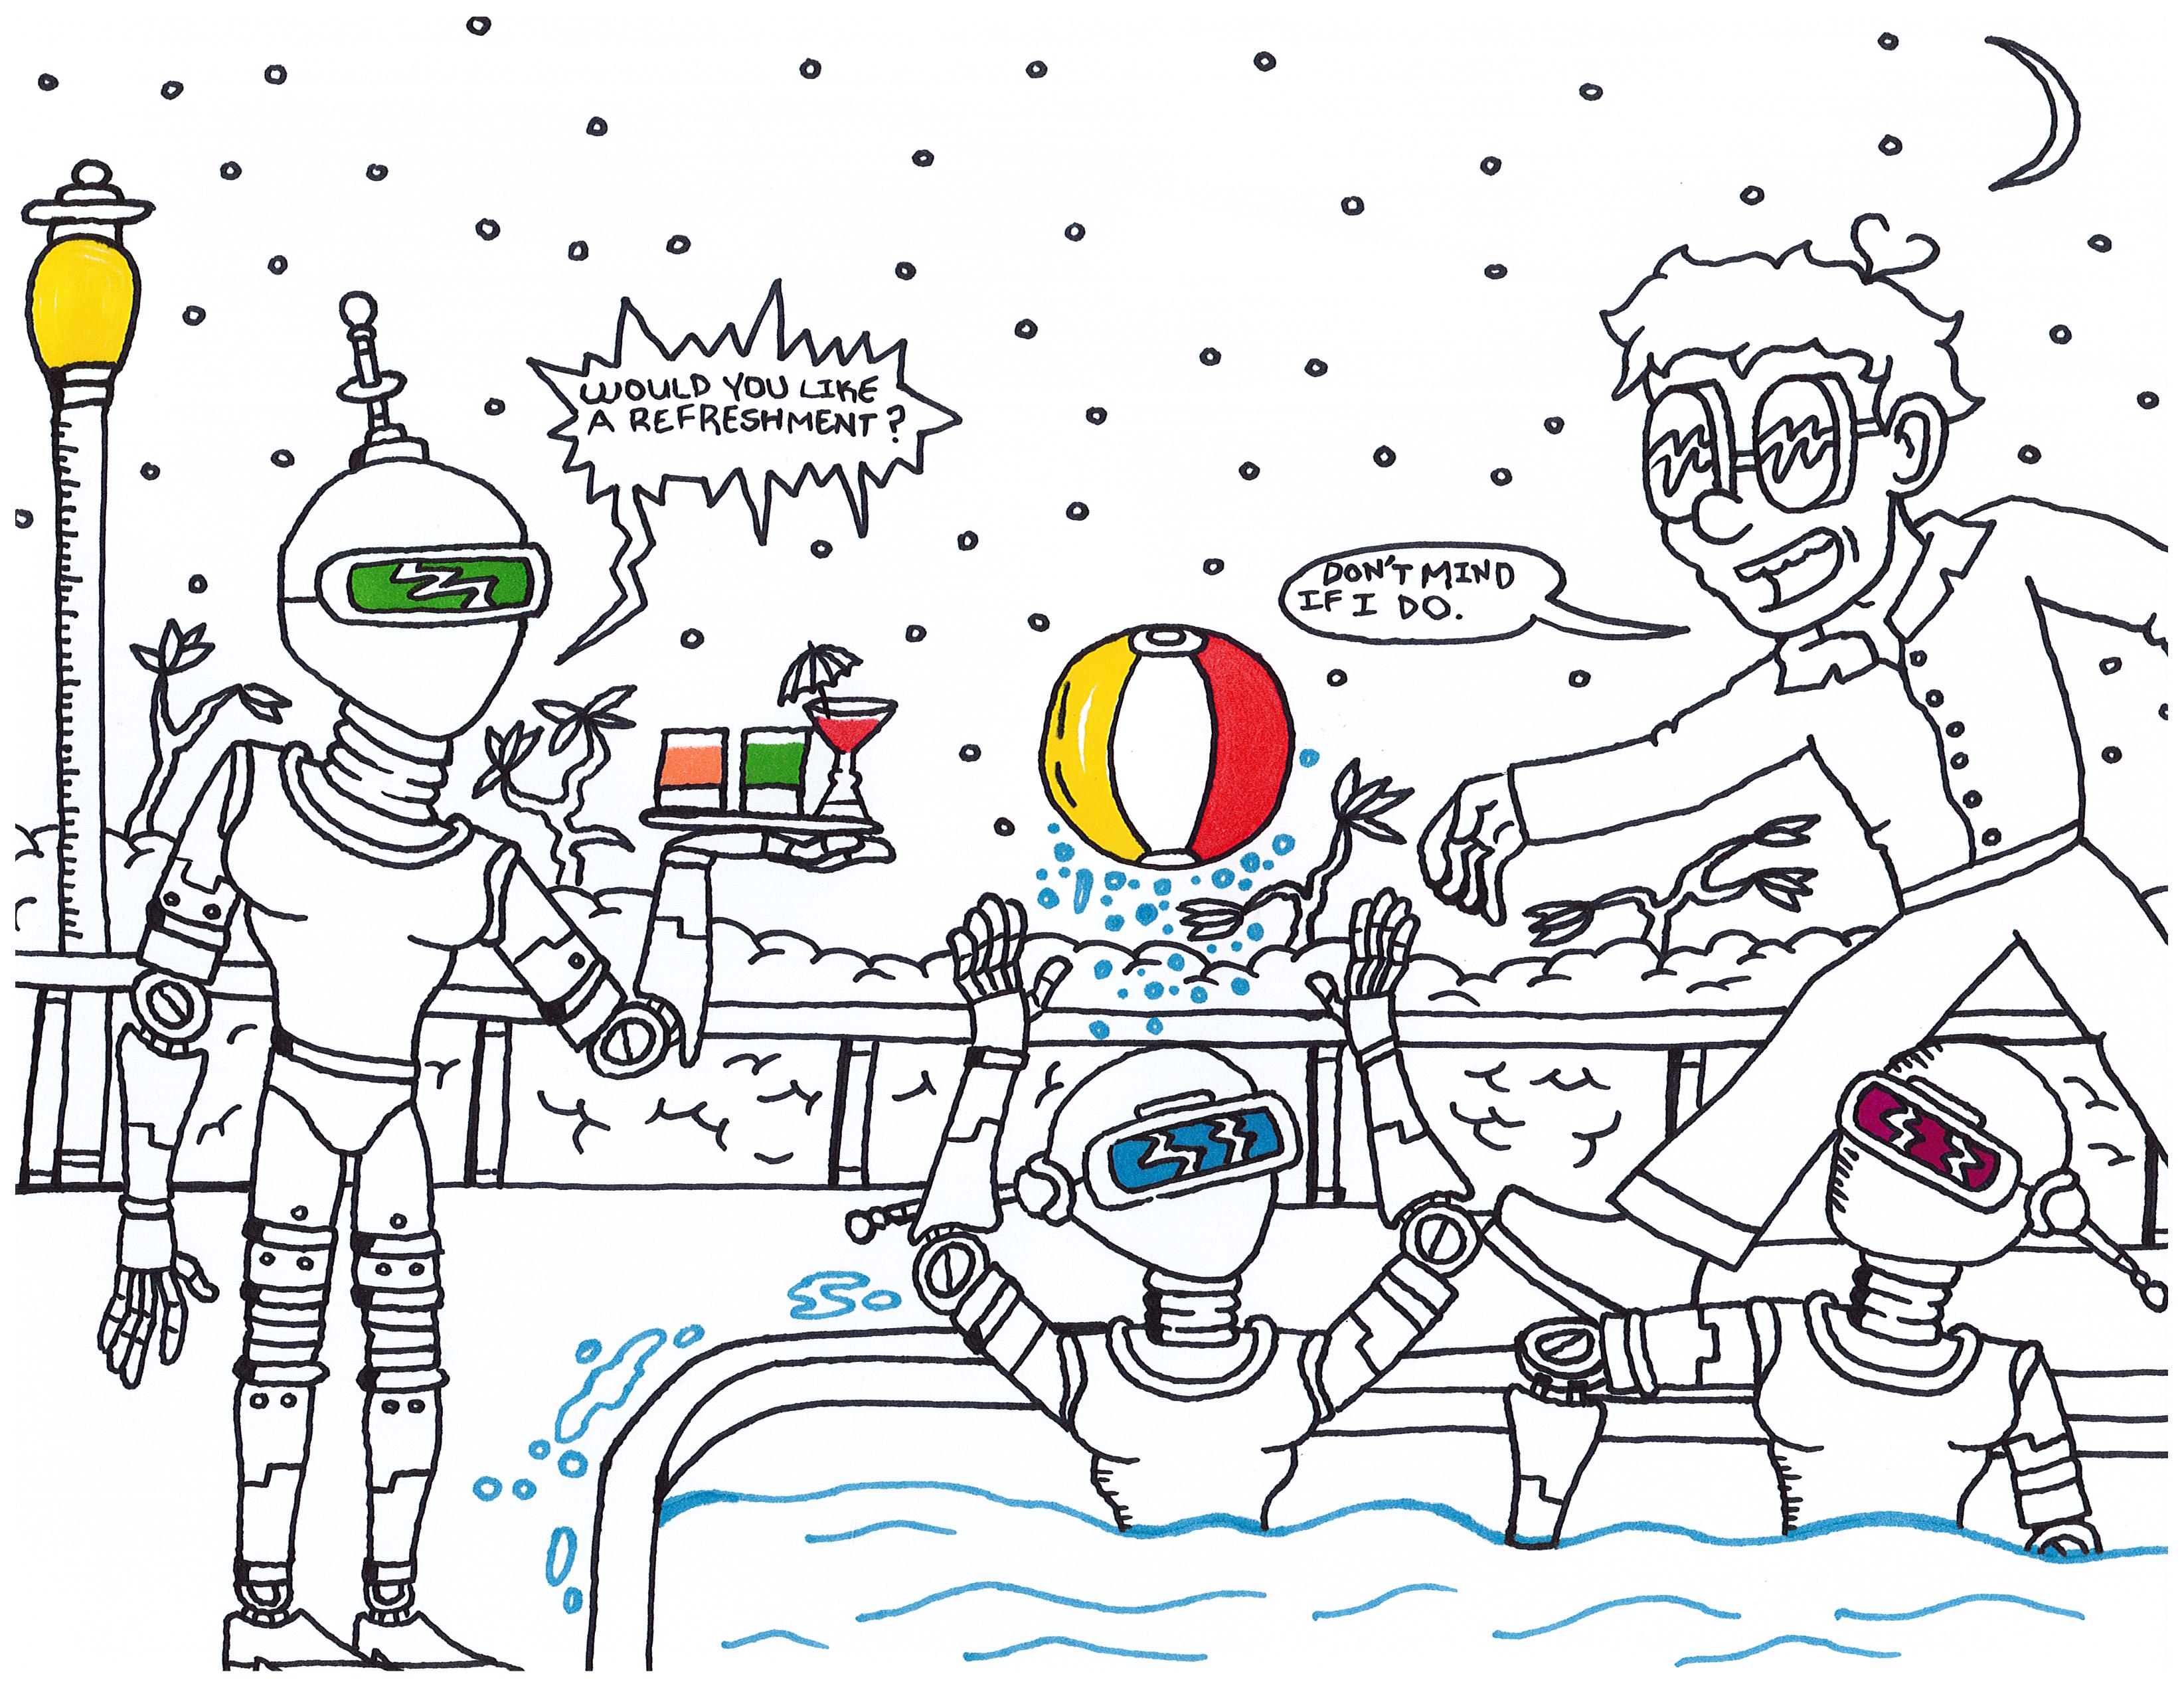 WOULD YOU LIKE
A REFRESHMENT?
DON'T MIND
IF I DO.